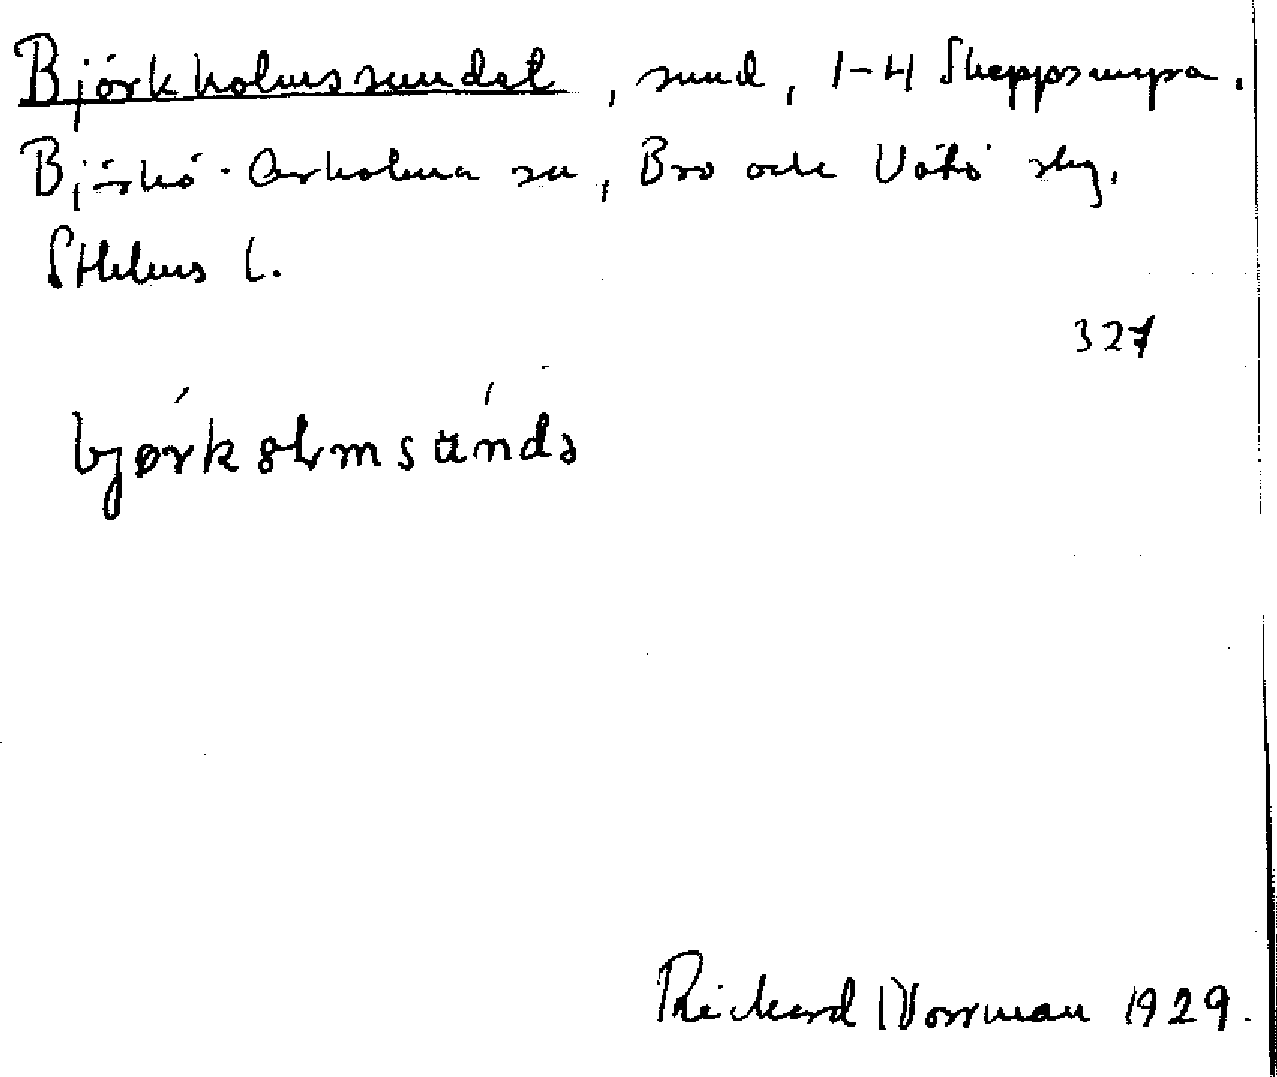 Björkholmssundet, sund, 1-4 Skeppsmyra.
Björkö-Arholma sn, Bro och Vätö skg.
Sthlms l.
327
bjørkolmsunda
Rickard Norrman 1929.